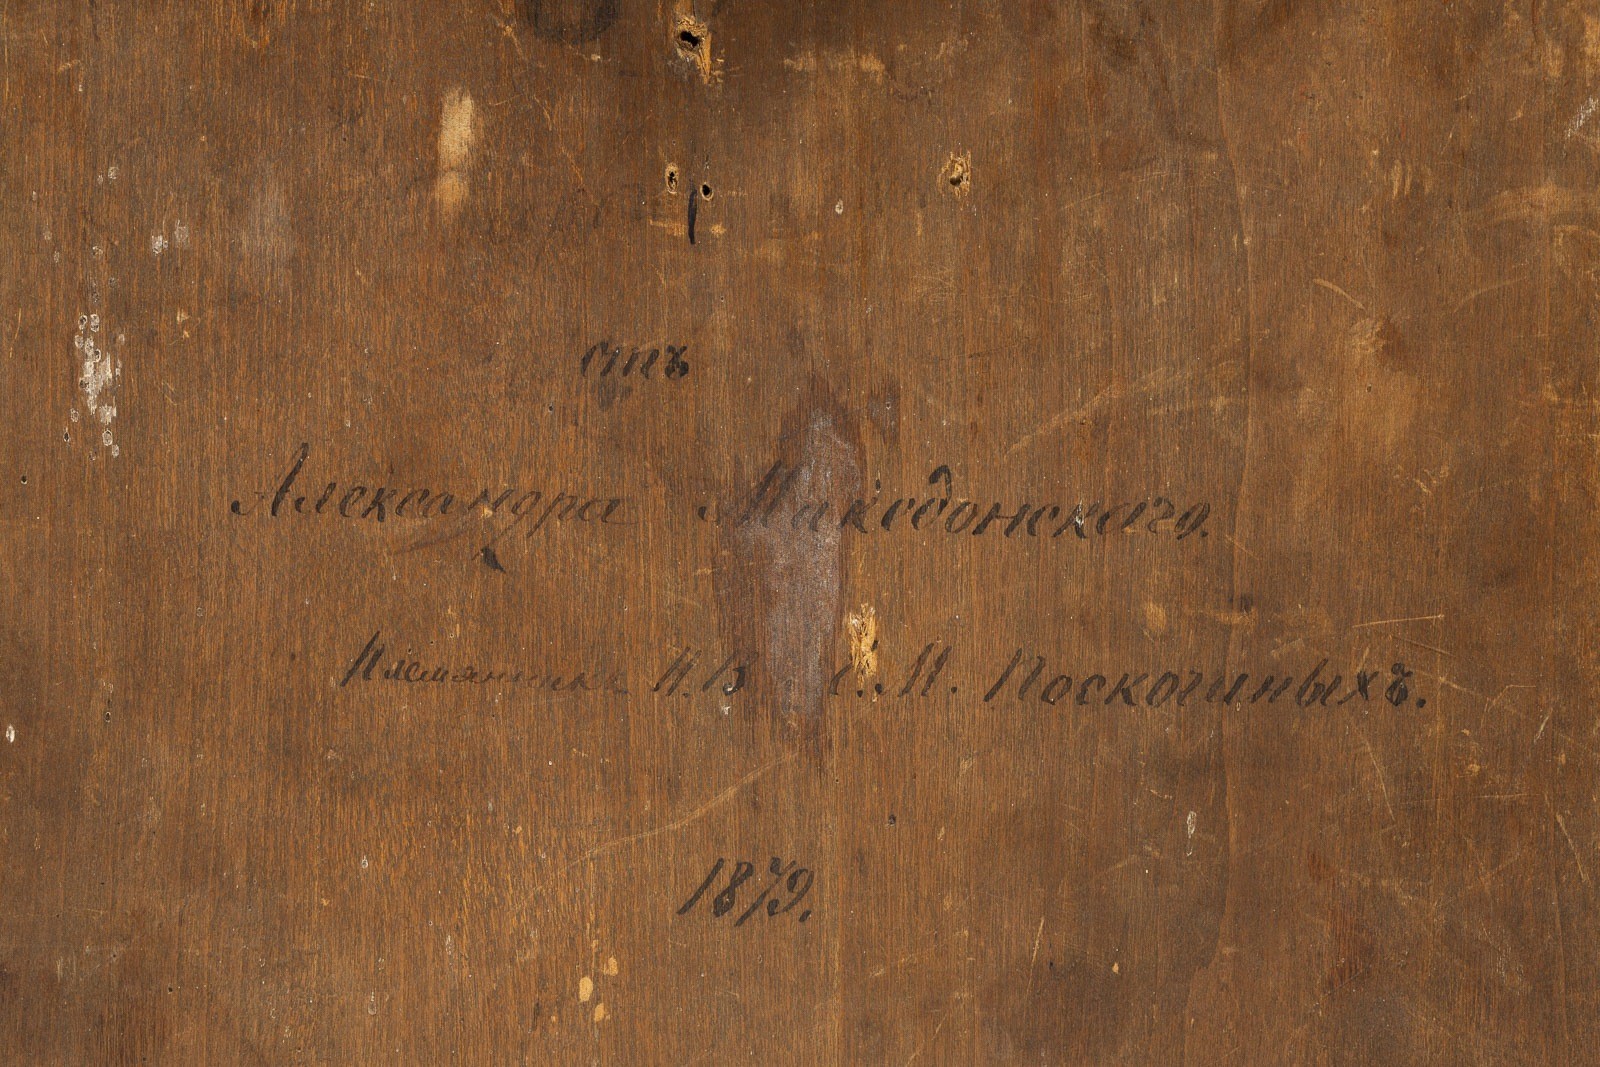 отъ
Александра Македонскаго.
Племянника Н. В и М. Поскочиныхъ.
1879.